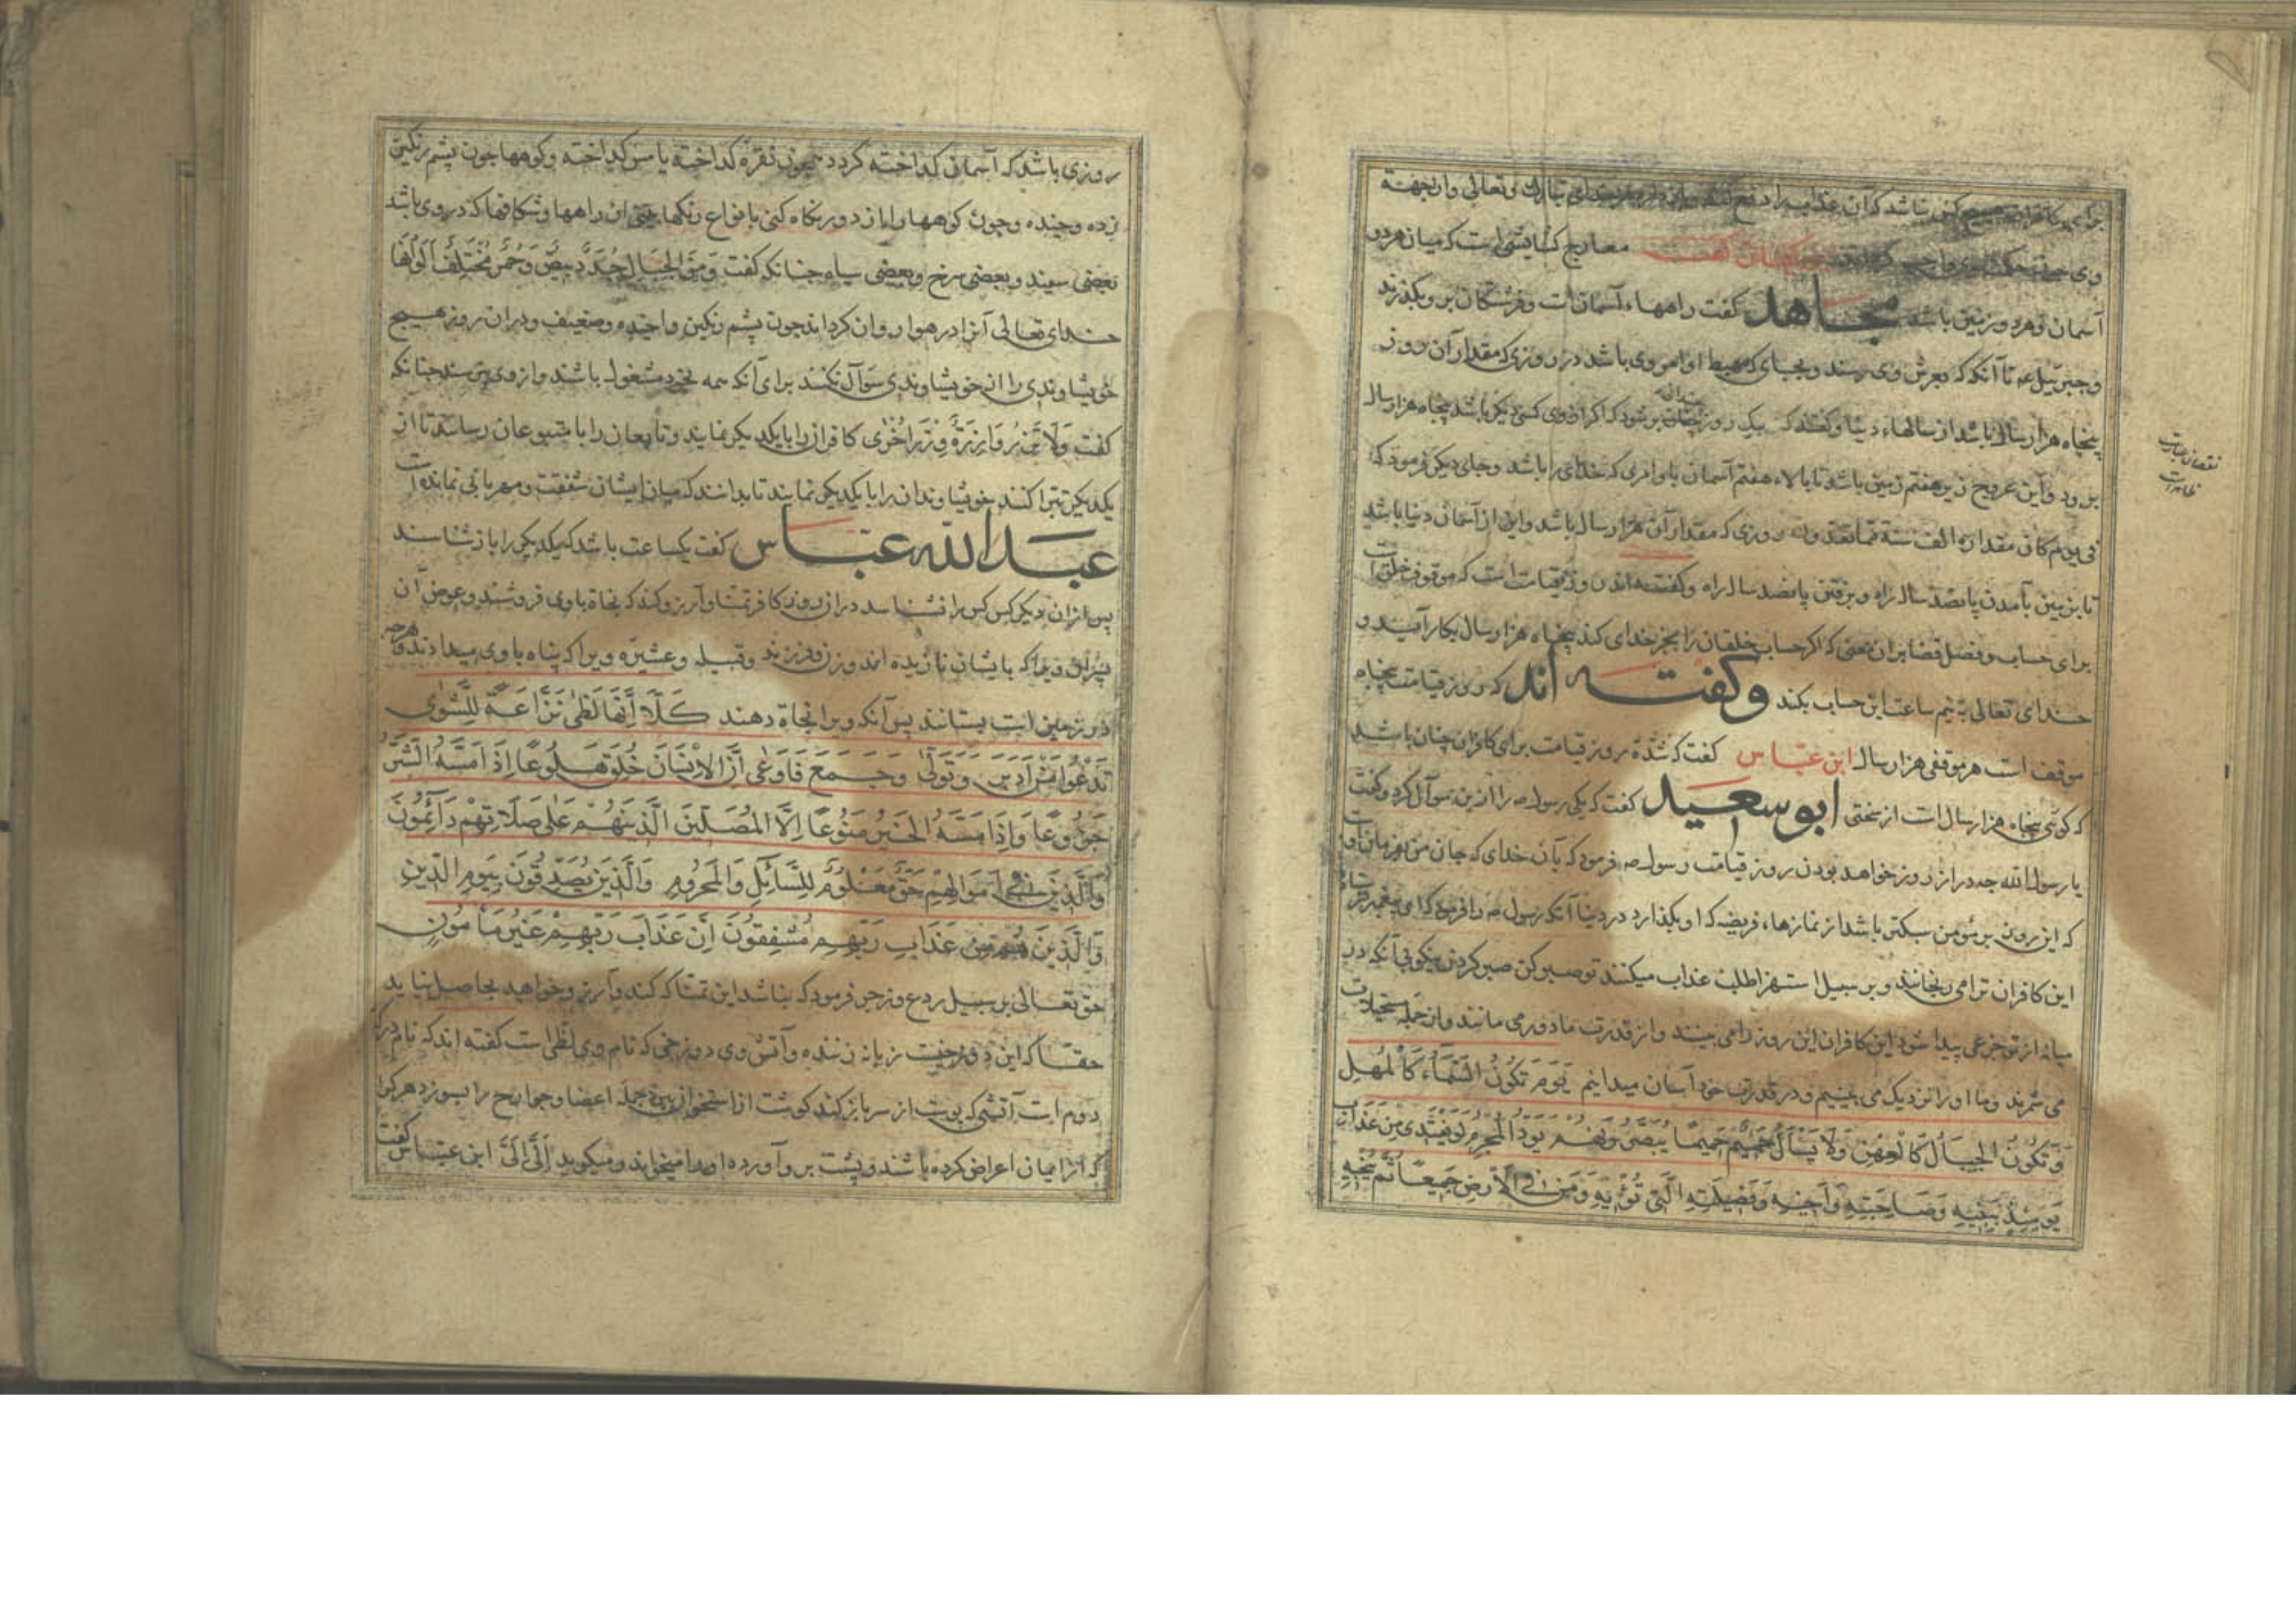 برای کافران هیچ کس نباشد که آن عذاب را دفع کند خدای تبارک و تعالی و از جهة
وی معارج کشایشی است که میان هر دو
آسمان و هر دو زمین باشد مجاهد کفت راههاء آسمان است و فرشتکان بر وی کذرند
و جبرئیل عم تا آنکه که بعرش وی رسند و بجای که محیط اوامر وی باشد در روزی که مقدار آن روز
پنجاه هزار سال باشد از سالهاء دنیا و کفتند که بیک روز چندان بر شود که اکر از وی کسی دیکر باشد پنجاه هزار سال
برود و این عروج از زیر هفتم زمین باشد تا بالاء هفتم آسمان باوامری که خدای را باشد و جای دیکر فرمود که
فی یوم کان مقداره الف سنة مما تعدون روزی که مقدار آن هزار سال باشد و این از آسمان دنیا باشد
تا بزمین بآمدن پانصد ساله راه و برفتن پانصد ساله راه و کفته اند روز قیامت است که موقوف خلق است
برای حساب و فصل قضا بر آن معنی که اکر حساب خلقان را بجز خدای کند پنجاه هزار سال بکار آمید و
خدای تعالی به نیم ساعت این حساب بکند و کفته اند که روز قیامت پنجاه
موقف است هر موقفی هزار سال ابن عبّاس کفت که شدة روز قیامت برای کافران چنان باشد
که کوئی پنجاه هزار سال است از سختی ابو سعید کفت که یکی رسول صه را از این سوآل کرد و کفت
یا رسول الله چه دراز روز خواهد بودن روز قیامت رسول صه فرمود که بآن خدای که جان من بفرمان اوست
که این روز بر مؤمن سبکتر باشد از نمازهاء فریضه که او بکذارد در دنیا آنکه رسول صه را فرمود که ای پیغمبر
این کافران ترا می رنجانند و بر سبیل استهزا طلب عذاب میکنند تو صبر کن صبر کردن نیکو بی آنکه در
میانه از تو جزعی پیدا شود این کافران این روز را می بینند و از قدرت ما دور می مانند و از جمله مستحیلات
می شمرند و ما او را نزدیک می بینیم و در قدرت خود آسان میدانیم یَوْمَ تَکُونُ السَّمَآءُ کَالْمُهْلِ
وَتَکُونُ الْجِبَالُ کَالْعِهْنِ وَلَا یَسْأَلُ حَمِیمٌ حَمِیمًا یُبَصَّرُونَهُمْ یَوَدُّ الْمُجْرِمُ لَوْ یَفْتَدِی مِنْ عَذَابِ
یَوْمِئِذٍ بِبَنِیهِ وَصَاحِبَتِهِ وَأَخِیهِ وَفَصِیلَتِهِ الَّتِی تُؤْیهِ وَمَنْ فِی الْأَرْضِ جَمِیعًا ثُمَّ یُنْجِیهِ
نقصان عبارت
ظاهرا است
روزی باشد که آسمان کداخته کردد چون نقره کداخته یا مس کداخته و کوهها چون پشم رنکین
زده و چنده و چون کوهها را از دور نکاه کنی بانواع رنکها بینی از راهها و شکافها که در وی باشد
بعضی سپید و بعضی سرخ و بعضی سیاه چنانکه کفت وَمِنَ الْجِبَالِ جُدَدٌ بِیضٌ وَحُمْرٌ مُخْتَلِفٌ أَلْوَانُهَا
خدای تعالی آنرا در هوا روان کرداند چون پشم رنکین واخیده و ضعیف و در آن روز هیچ
خویشاوندی را از خویشاوندی سوآل نکنند برای آنکه همه بخود مشغول باشند و از وی پرسند چنانکه
کفت وَلَا تَزِرُ وَازِرَةٌ وِزْرَ أُخْرٰی کافران را با یکدیکر نمایند و تابعان را با متبوعان رسانند تا از
یکدیکر تبرّا کنند خویشاوندان را با یکدیکر نمایند تا بدانند که میان ایشان شفقت و مهربانی نمانده است
عبد الله عبّاس کفت یکساعت باشد که یکدیکر را باز شناسند
پس از آن دیکر کس کس را نشناسد در آن روز کافر تمنّا و آرزو کند که نجاة باوی فروشند و عوض آن
پسران ویرا که بایشان نازیده اند و زن و فرزند و قبیله و عشیره ویرا که پناه باوی میدادند و هر چه
در زمین است بستانند پس آنکه ویرا نجاة دهند کَلَّا إِنَّهَا لَظٰی نَزَّاعَةً لِلشَّوٰی
تَدْعُوا مَنْ أَدْبَرَ وَتَوَلّٰی وَجَمَعَ فَأَوْعٰی إِنَّ الْإِنْسَانَ خُلِقَ هَلُوعًا إِذَا مَسَّهُ الشَّرُّ
جَزُوعًا وَإِذَا مَسَّهُ الْخَیْرُ مَنُوعًا إِلَّا الْمُصَلِّینَ الَّذِینَ هُمْ عَلٰی صَلَاتِهِمْ دَآئِمُونَ
وَالَّذِینَ فِی أَمْوَالِهِمْ حَقٌّ مَعْلُومٌ لِلسَّآئِلِ وَالْمَحْرُومِ وَالَّذِینَ یُصَدِّقُونَ بِیَوْمِ الدِّینِ
وَالَّذِینَ هُمْ مِنْ عَذَابِ رَبِّهِمْ مُشْفِقُونَ إِنَّ عَذَابَ رَبِّهِمْ غَیْرُ مَأْمُونٍ
حق تعالی بر سبیل ردع و زجر فرمود که نباشد این تمنّا که کند و آرزو خواهد بحاصل نیاید
حقّا که این دوزخیست زبانه زننده و آتش وی دوزخی که نام وی لظی است کفته اند که نام درکه
دوم است آتشی که پوست از سر باز کند کوشت از استخوان جمله اعضا و جوارح را بسوزد هر کرا
که از ایمان اعراض کرده باشند و پشت بر وآورده او را میخواند و میکوید اِلَیَّ اِلَیَّ ابن عبّاس کفت